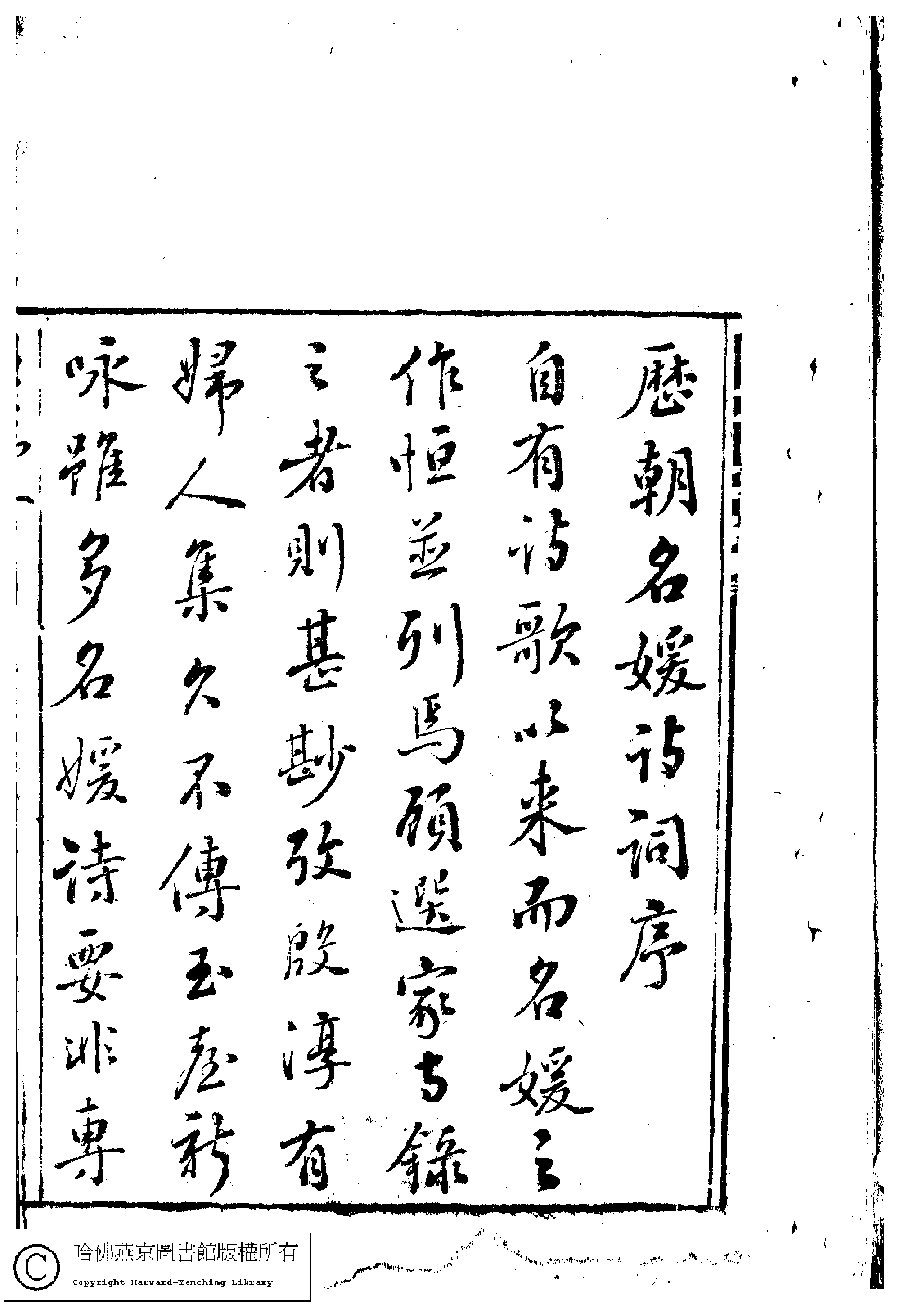 歷朝名媛詩詞序
自有詩歌以来而名媛之
作恒並列焉顧選家專錄
之者則甚尠攷殷淳有
婦人集久不傳玉臺新
咏雖多名媛詩要非專
哈佛燕京圖書館版權所有
Copyright Harvard-Yenching Library